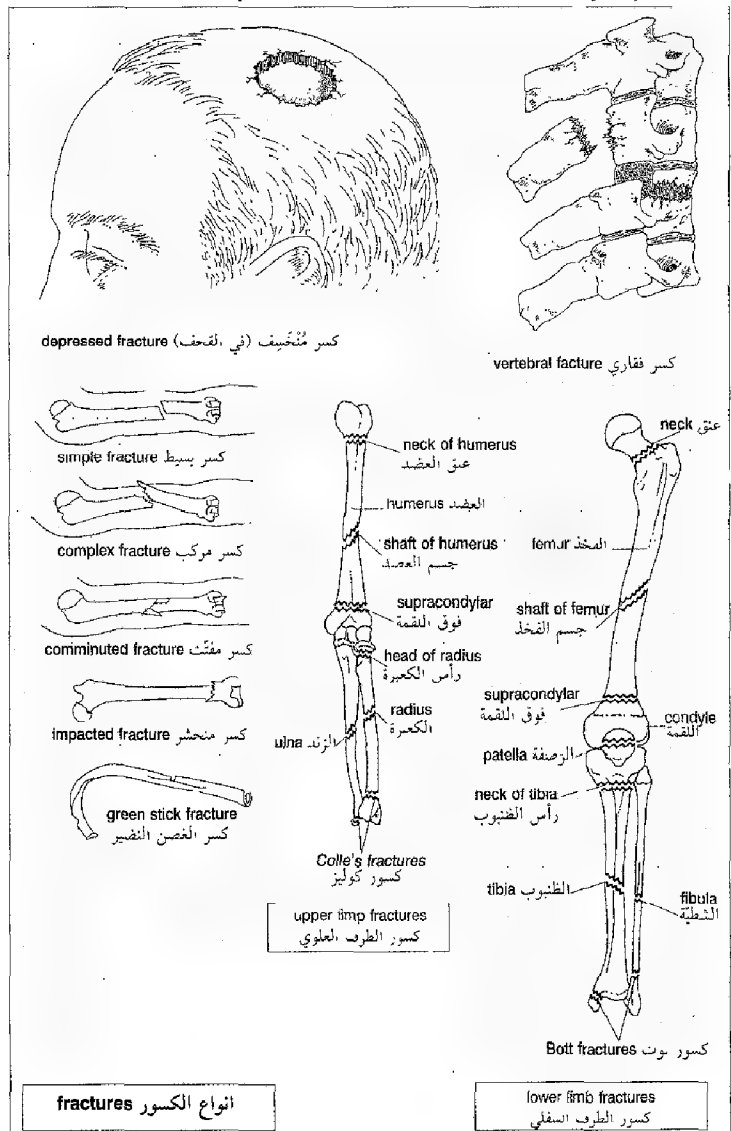 depressed fracture (في القحف) كسر مُنْخَسِف
vertebral facture كسر فقاري
simple fracture كسر بسيط
complex fracture كسر مركب
comminuted fracture كسر مفتّت
impacted fracture كسر منحشر
green stick fracture
كسر الغصن النضير
neck of humerus
عنق العضد
humerus العضد
shaft of humerus
جسم العضد
supracondylar
فوق اللقمة
head of radius
رأس الكعبرة
radius
الكعبرة
ulna الزند
Colle's fractures
كسور كوليز
upper limp fractures
كسور الطرف العلوي
neck عنق
femur الفخذ
shaft of femur
جسم الفخذ
supracondylar
فوق اللقمة
condyle
اللقمة
patella الرضفة
neck of tibia
رأس الظنبوب
tibia الظنبوب
fibula
الشظيّة
Bott fractures كسور بوت
fractures انواع الكسور
lower limb fractures
كسور الطرف السفلي